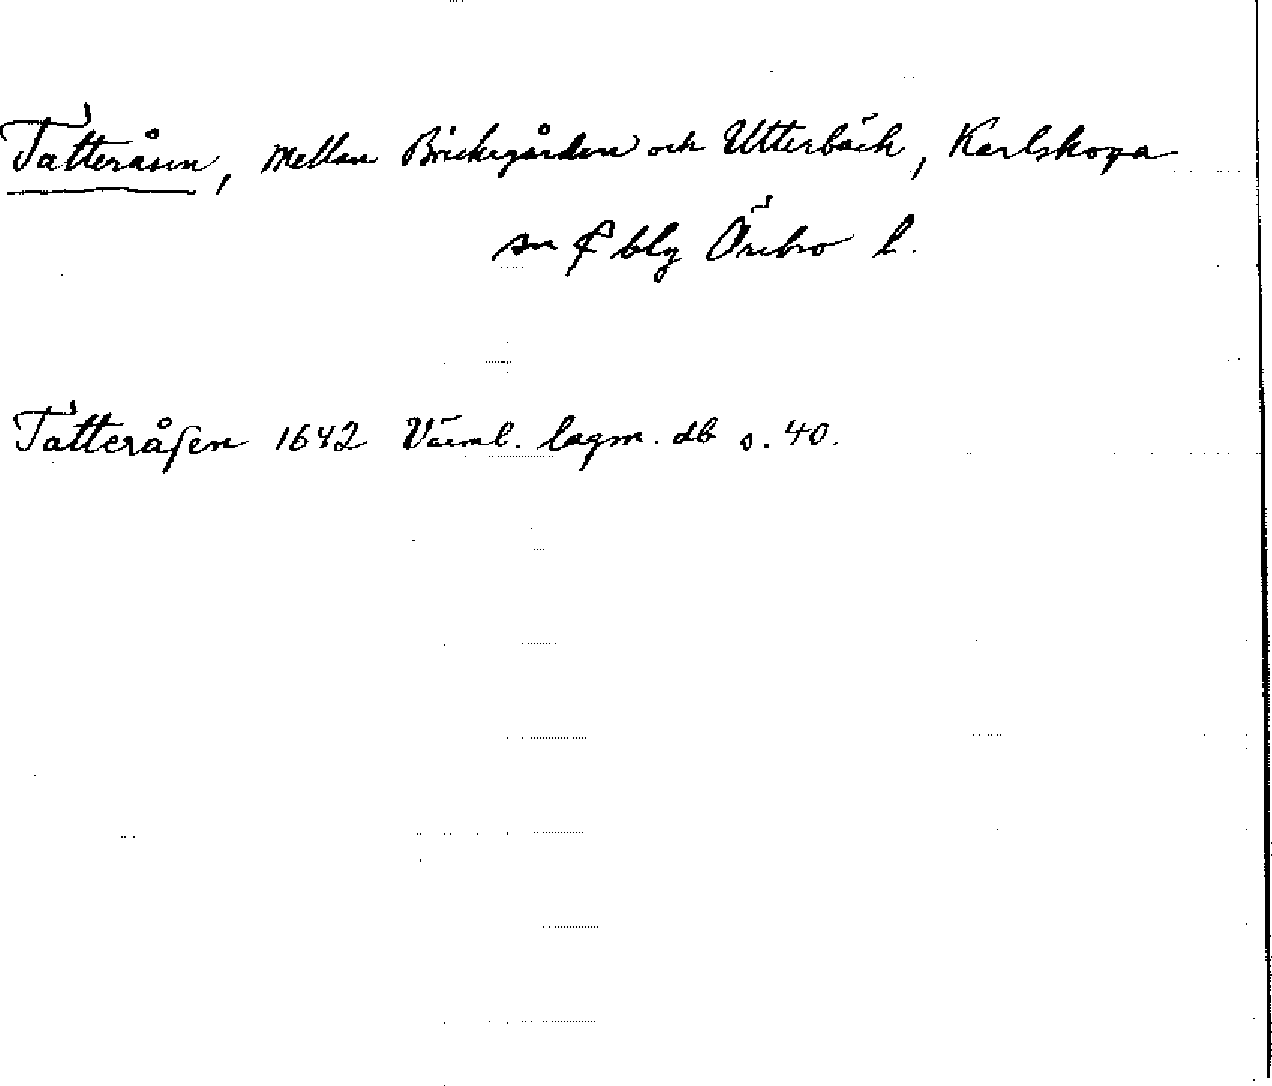 Tatteråsen, mellan Bäckegården och Utterbäck, Karlskoga
sn & blg Örebro l.
Tatteråſen 1642 Värml. lagm. db s. 40.